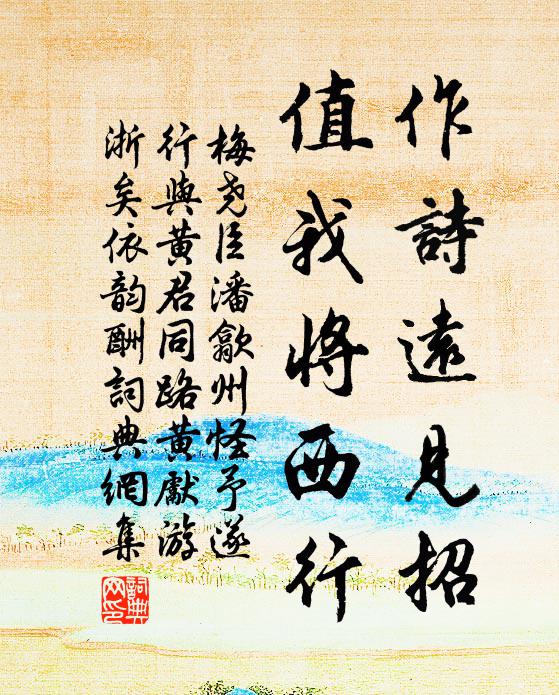 作詩遠見招
值我將西行
梅尧臣潘歙州怪予遂
行與黃君同路黃獻游
浙矣依韵酬詞典網集